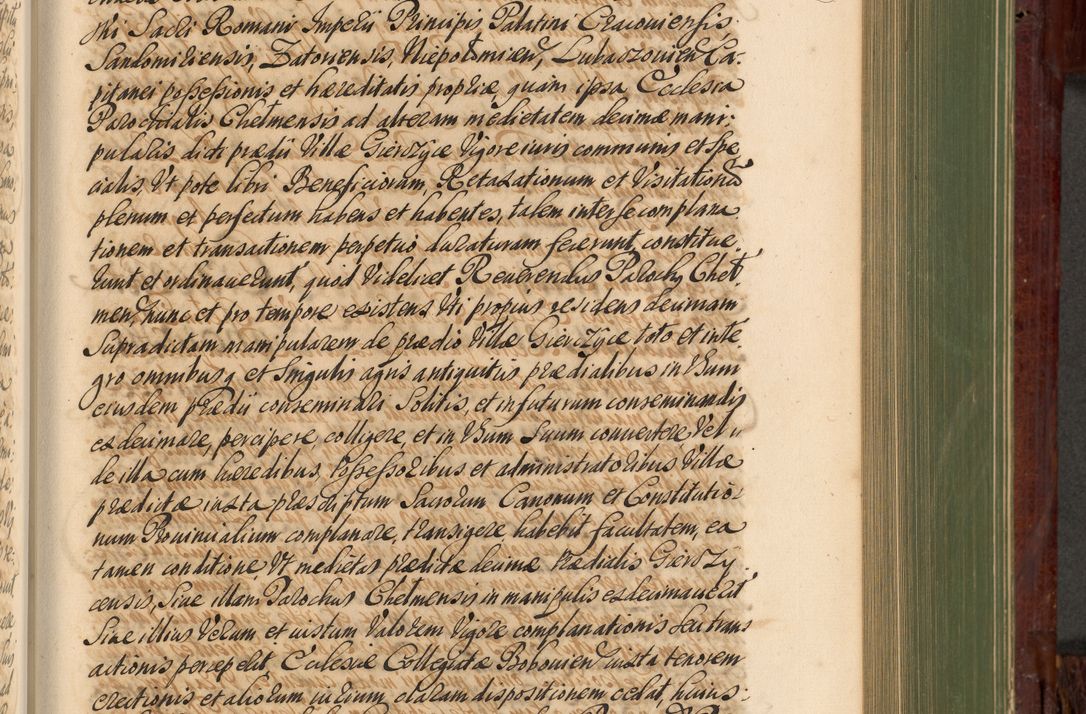 mi Sacri Romani Imperii Principis Palatini Cracoviensis
Sandomiriensis, Zatoriensis, Niepolomicen, Lubaszovien Ca-
pitanei possessionis et hæreditatis propriæ, quam ipsa Ecclesia
Parochialis Chelmensis ad alteram medietatem decimæ mani-
pularis dicti prædii Villæ Gierczyce Vigore iuris communis et spe
cialis, Vt pote libri Beneficiorum, Retaxationum et Visitationū
plenum et perfectum habens et habentes, talem inter se complana
tionem et transactionem perpetuo duraturam fecerunt, constitue-
runt et ordinaverunt, quod Videlicet Reverendus Parochus Chel-
men, nunc et pro tempore existens Vti propius residens decimam
Supradictam manipularem de prædio Villæ Gierczyce toto et inte
gro omnibusq et Singulis agris antiquitus prædialibus in Vsum
eiusdem Prædii conseminari Solitis, et in futurum conseminandis
exdecimare, percipere colligere, et in Vsum Suum convertere Vel
de illa cum hæredibus, Possessoribus et administratoribus Villæ
prædictæ iuxta præscriptum Sacrorum Canonum et Constitutio-
num Provincialium complanare, transigere habebit facultatem, ea
tamen conditione, Vt medietas prædictæ decimæ Prædialis Gierczy-
censis, Sive illam Parochus Chelmensis in manipulis exdecimaverit
Sive illius Verum et iustum Valorem Vigore complanationis seu trans
actionis perceperit Ecclesiæ Collegiatæ Bobovien iuxta tenorem
erectionis et aliorum iurium, claram dispositionem cedat, huius-